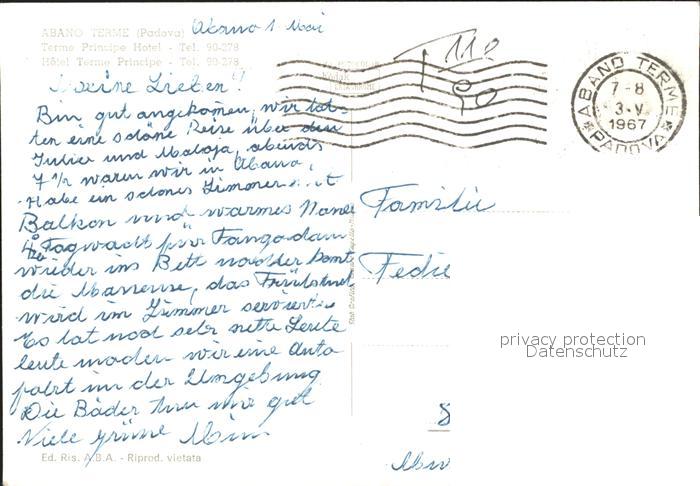 ABANO TERME (Padova) Abano 1 Mai
Terme Principe Hotel - Tel. 90-278
Hôtel Terme Principe - Tel. 90-278
Meine Lieben!
Bin gut angekomen, wir hat-
ten eine schöne Reise über den
Julier und Maloja, abends
7 ½ waren wir in Abano,
Habe ein schönes Zimmer mit
Balkon und warmes
Tagwacht für Fango dan
wieder ins Bett nachher komt
die Masseuse, das Frühstück
wird im Zimmer serviert
Es hat noch sehr nette Leute
heute machen wir eine Auto
fahrt in der Umgebung
Die Bäder tun mir gut
Viele grüsse
Ed. Ris. A.B.A. - Riprod. vietata
110
90
ABANO TERME
7-8
3.V.
1967
PADOVA
Familie
privacy protection
Datenschutz
8